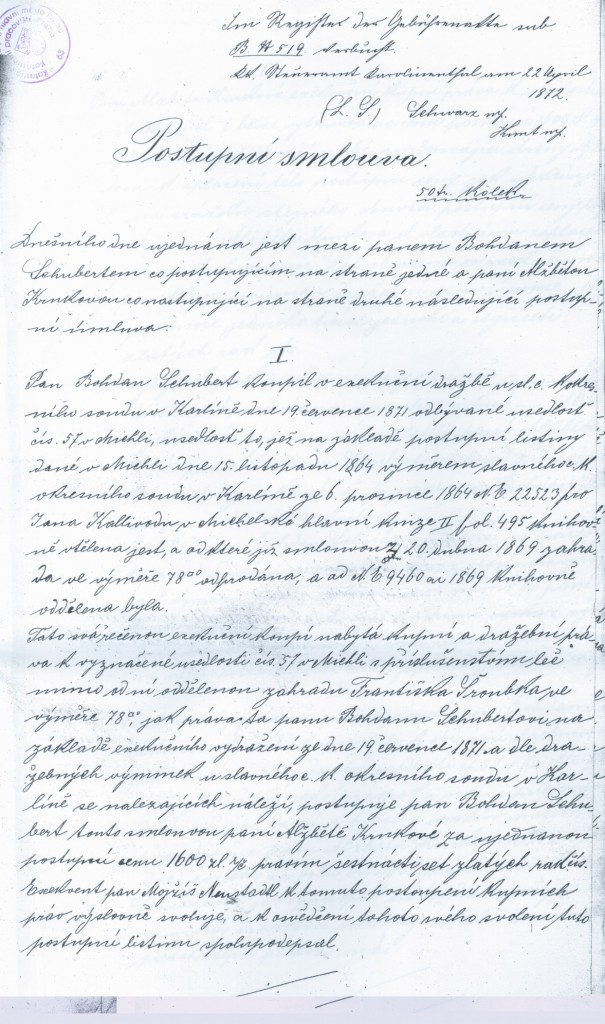 Im Register der Gebührenakte sub
B. A 519 verbucht.
kk Steueramt Karolinenthal am 22 April
1872.
(L. S.) Schwarz mp.
mp.
Postupní smlouva.
50 kr. Kolek
Dnešního dne ujednána jest mezi panem Bohdanem
Schubertem co postupujícím na straně jedné a paní Alžbětou
Krnkovou co nastupující na straně druhé následující postup-
ní úmluva.
I.
Pan Bohdan Schubert koupil v exekuční dražbě u sl. c. k okre-
sního soudu v Karlíně dne 19 července 1871 odbývané usedlost
čís. 57 v Michli, usedlost to, jež na základě postupní listiny
dané v Michli dne 15. listopadu 1864 výměrem slavného c. k.
okresního soudu v Karlíně ze 6. prosince 1864 N. E 22523 pro
Jana Kallivodu v Michelské hlavní knize II fol. 495 knihov-
ně vtělena jest, a od které již smlouvou z 20. dubna 1869 zahra-
da ve výměře 78°° odprodána, a od N. E 9460 ai 1869 knihovně
oddělena byla.
Tato svářečenou exekuční koupí nabytá kupní a dražební prá-
va k vyznačené usedlosti čís. 57 v Michli s příslušenstvím leč
mimo od ní oddělenou zahradu Františka Troubka ve
výměře 78°° jak práva ta panu Bohdanu Schubertovi na
základě exekučního vydražení ze dne 19 července 1871 a dle dra-
žebných výminek u slavného c. k. okresního soudu v Kar-
líně se nalezajících náleží, postupuje pan Bohdan Schu-
bert touto smlouvou paní Alžbětě Krnkové za ujednanou
postupní cenu 1600 zl. pravím šestnácti set zlatých rak čís.
Exekvent pan Mojžíš Neustadtl k tomuto postoupení kupních
práv výslovně svoluje, a k osvědčení tohoto svého svolení tuto
postupní listinu spolupodepsal.